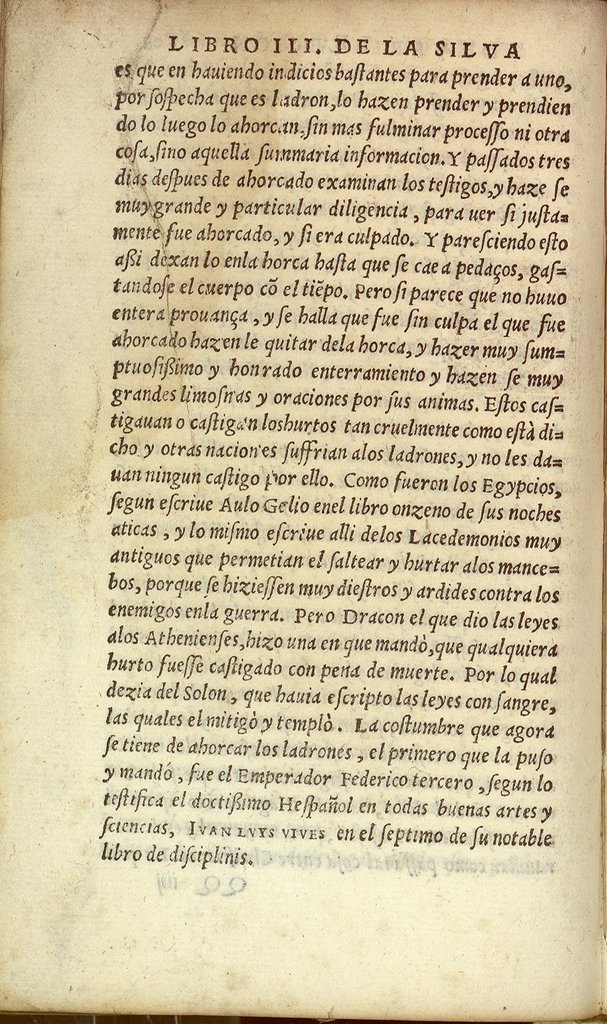 LIBRO III. DE LA SILVA
es que en hauiendo indicios baſtantes para prender a uno,
por ſoſpecha que es ladron, lo hazen prender y prendien
do lo luego lo ahorcan, ſin mas fulminar proceſſo ni otra
coſa, ſino aquella ſummaria informacion. Y paſſados tres
dias deſpues de ahorcado examinan los teſtigos, y haze ſe
muy grande y particular diligencia, para uer ſi juſta=
mente fue ahorcado, y ſi era culpado. Y pareſciendo eſto
aßi dexan lo enla horca haſta que ſe cae a pedaços, gaſ=
tandoſe el cuerpo cõ el tiẽpo. Pero ſi parece que no huuo
entera prouança, y ſe halla que fue ſin culpa el que fue
ahorcado hazen le quitar dela horca, y hazer muy ſum=
ptuoſißimo y honrado enterramiento y hazen ſe muy
grandes limoſnas y oraciones por ſus animas. Eſtos caſ=
tigauan o caſtigan loshurtos tan cruelmente como eſtà di=
cho y otras naciones ſuffrian alos ladrones, y no les da=
uan ningun caſtigo por ello. Como fueron los Egypcios,
ſegun eſcriue Aulo Gelio enel libro onzeno de ſus noches
aticas, y lo miſmo eſcriue alli delos Lacedemonios muy
antiguos que permetian el ſaltear y hurtar alos mance=
bos, porque ſe hizieſſen muy dieſtros y ardides contra los
enemigos enla guerra. Pero Dracon el que dio las leyes
alos Athenienſes, hizo una en que mandò, que qualquiera
hurto fueſſe caſtigado con pena de muerte. Por lo qual
dezia del Solon, que hauia eſcripto las leyes con ſangre,
las quales el mitigò y templò. La coſtumbre que agora
ſe tiene de ahorcar los ladrones, el primero que la puſo
y mandó, fue el Emperador Federico tercero, ſegun lo
teſtifica el doctißimo Heſpañol en todas buenas artes y
ſciencias, IVAN LVYS VIVES en el ſeptimo de ſu notable
libro de diſciplinis.